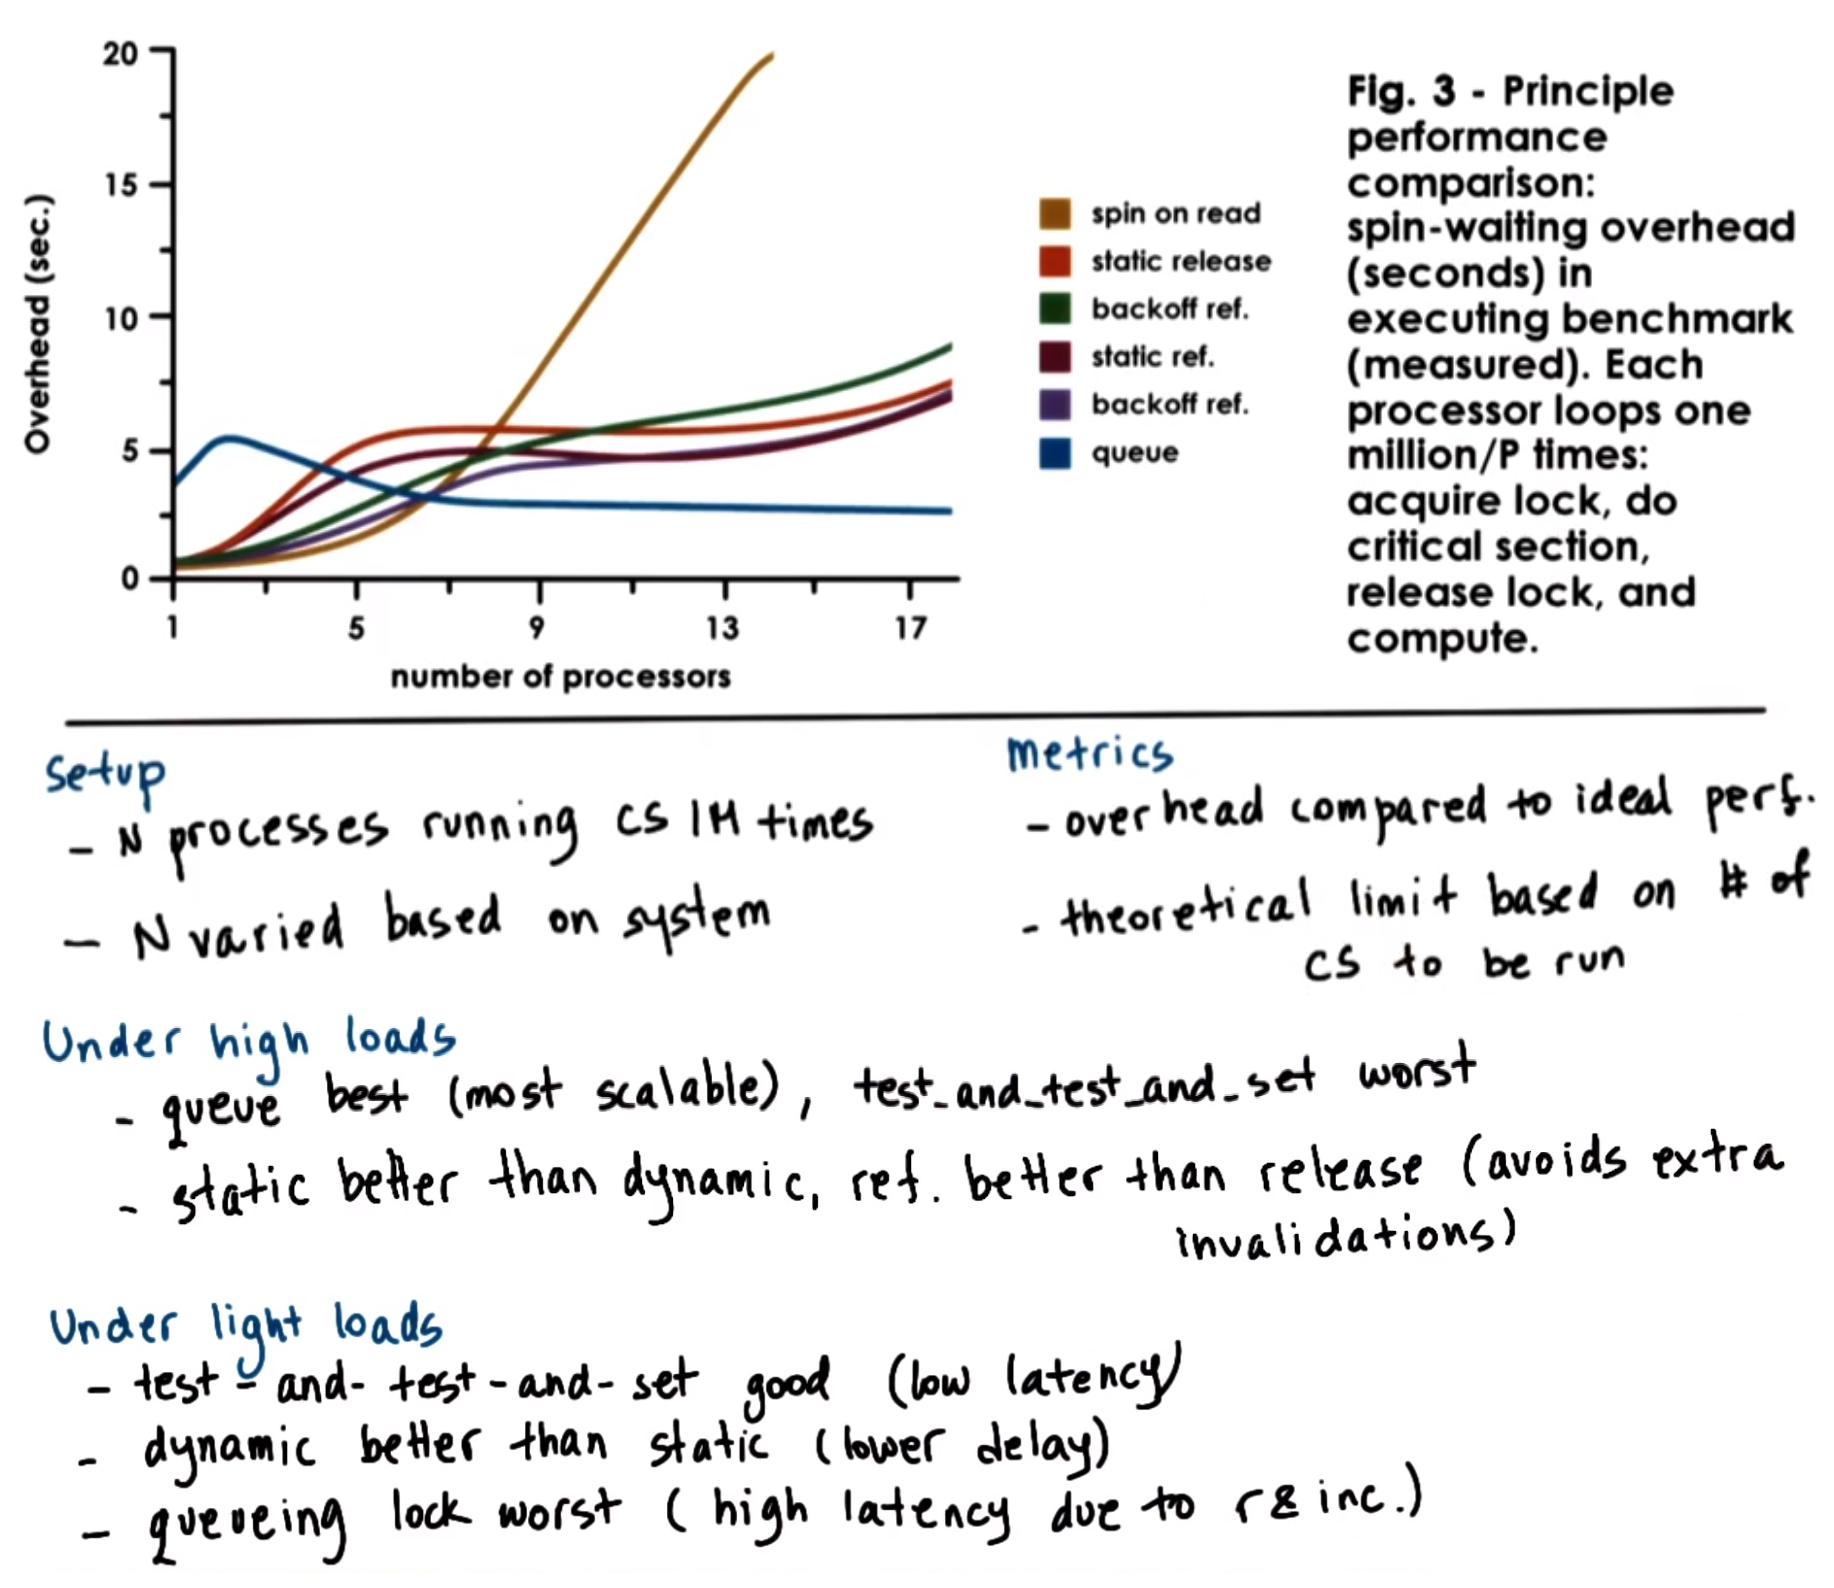 20
15
10
5
0
Overhead (sec.)
1 5 9 13 17
number of processors
spin on read
static release
backoff ref.
static ref.
backoff ref.
queue
Fig. 3 - Principle
performance
comparison:
spin-waiting overhead
(seconds) in
executing benchmark
(measured). Each
processor loops one
million/P times:
acquire lock, do
critical section,
release lock, and
compute.
Setup
- N processes running CS 1M times
- N varied based on system
Metrics
- overhead compared to ideal perf.
- theoretical limit based on # of
CS to be run
Under high loads
- queue best (most scalable), test_and_test_and_set worst
- static better than dynamic, ref. better than release (avoids extra
invalidations)
Under light loads
- test-and-test-and-set good (low latency)
- dynamic better than static (lower delay)
- queueing lock worst (high latency due to r&inc.)